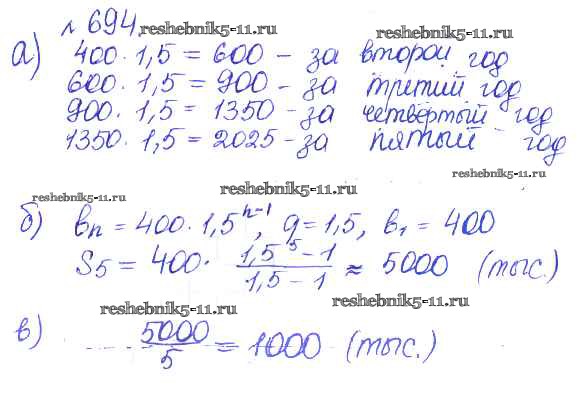 № 694. reshebnik5-11.ru
а) 400 · 1,5 = 600 - за второй год
reshebnik5-11.ru
600 · 1,5 = 900 - за третий год
900 · 1,5 = 1350 - за четвёртый год
1350 · 1,5 = 2025 - за пятый год
reshebnik5-11.ru
reshebnik5-11.ru
reshebnik5-11.ru
б) bₙ = 400 · 1,5ⁿ⁻¹, q = 1,5, b₁ = 400
S₅ = 400 · (1,5⁵ - 1)/(1,5 - 1) ≈ 5000 (тыс.)
reshebnik5-11.ru
reshebnik5-11.ru
в) 5000/5 = 1000 (тыс.)